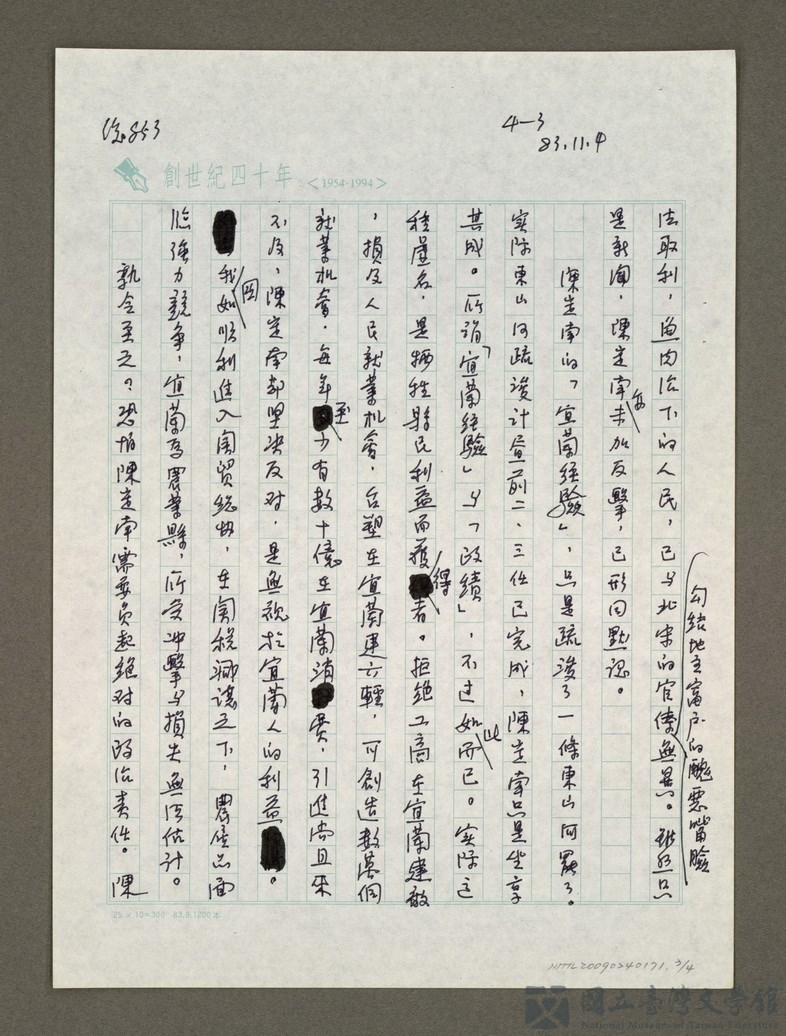 总853
4-3
83.11.4
創世紀四十年 <1954-1994>
勾结地主富戶的醜惡嘴臉
法取利，鱼肉治下的人民，已与北宋的官僚無異。雖然只
是新闻，陳定南未加反擊，已形同默認。
陳定南的「宜蘭经驗」，只是疏浚了一條東山河罢了。
实际東山河疏浚計畫前二、三任已完成，陳定南只是坐享
其成。所謂「宜蘭经驗」与「政績」，不过如此而已。实际这
種虛名，是牺牲縣民利益而獲得者。拒绝工商在宜蘭建廠
，損及人民就業机會，台塑在宜蘭建六輕，可創造数萬個
就業机會，每年至少有数十億在宜蘭消費，引進尚且來
不及，陳定南却坚决反对，是無視於宜蘭人的利益。
我国如順利進入関贸総协，在関税減讓之下，農產品面
临強力競争，宜蘭為農業縣，所受冲擊与損失無法估计。
孰令至之？恐怕陳定南需要負起绝对的政治責任。陳
25×10=300 83.8.1200本
NMTL20090240171. 3/4
國立臺灣文學館
National Museum of Taiwan Literature